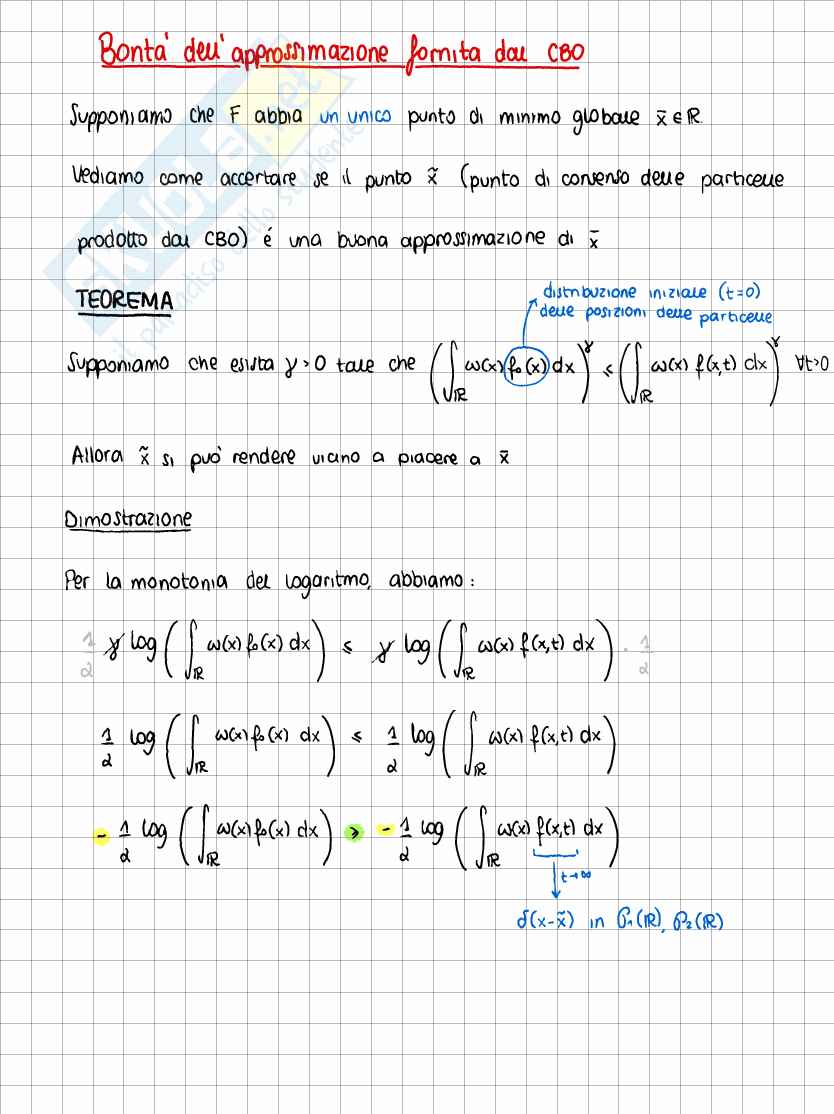 Bontà dell'approssimazione fornita dal CBO
Supponiamo che F abbia un unico punto di minimo globale x̄ ∈ ℝ.
Vediamo come accertare se il punto x̃ (punto di consenso delle particelle
prodotto dal CBO) é una buona approssimazione di x̄
TEOREMA
distribuzione iniziale (t=0)
delle posizioni delle particelle
Supponiamo che esista γ>0 tale che (∫_ℝ ω(x) f₀(x) dx)^γ ≤ (∫_ℝ ω(x) f(x,t) dx)^γ ∀t>0
Allora x̃ si può rendere vicino a piacere a x̄
Dimostrazione
Per la monotonia del logaritmo, abbiamo:
1/2 γ log(∫_ℝ ω(x) f₀(x) dx) ≤ γ log(∫_ℝ ω(x) f(x,t) dx) · 1/2
1/2 log(∫_ℝ ω(x) f₀(x) dx) ≤ 1/2 log(∫_ℝ ω(x) f(x,t) dx)
- 1/2 log(∫_ℝ ω(x) f₀(x) dx) ≥ - 1/2 log(∫_ℝ ω(x) f(x,t) dx)
t→∞
δ(x-x̃) in P₁(ℝ), P₂(ℝ)
SKUOLA.net
il paradiso dello studente